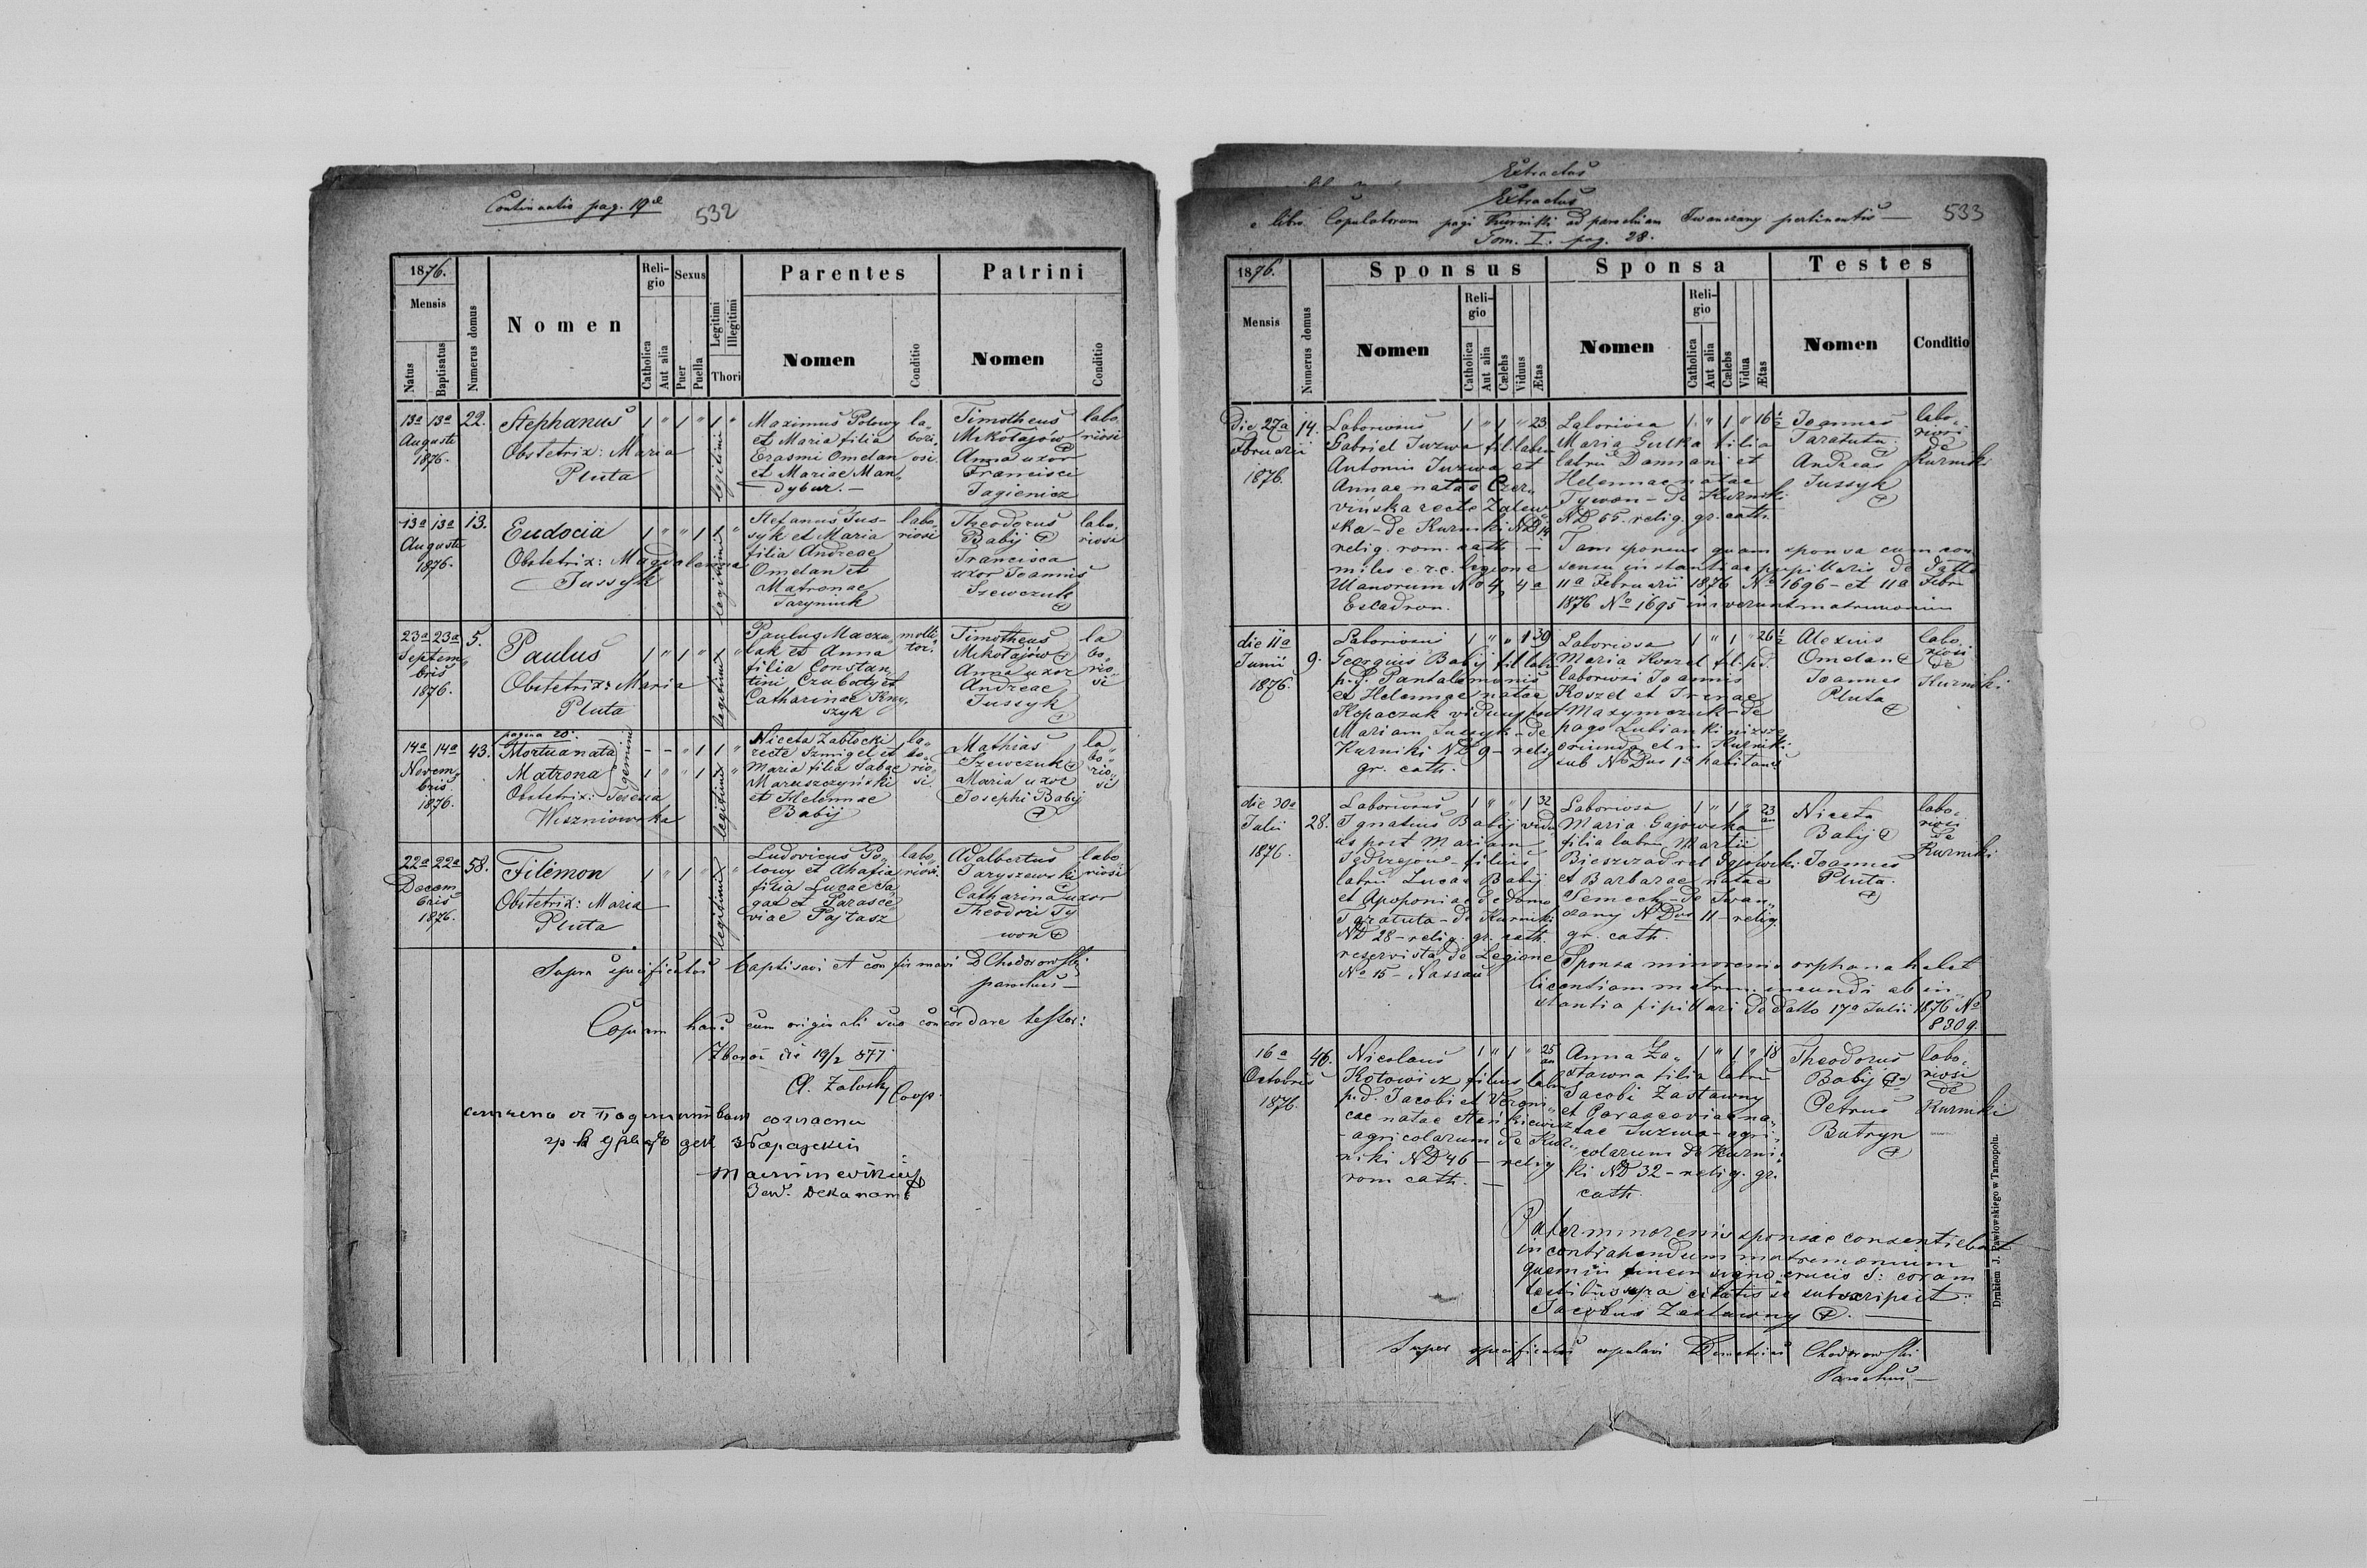 Continuatio pag. 19æ
532
1876.
Mensis
Natus
Baptisatus
Numerus domus
Nomen
Religio
Catholica
Aut alia
Sexus
Puer
Puella
Legitimi
Illegitimi
Thori
Parentes
Nomen
Conditio
Patrini
Nomen
Conditio
13a 13a
Augusti
1876.
22.
Stephanus
Obstetrix: Maria
Pluta
1 " 1 " 1 "
legitimi
Maximus Polowy
et Maria filia
Erasmi Omelan
et Mariae Man„
dybur. —
la„
bori„
osi.
Timotheus
Mikołajów
Anna uxor
Francisci
Jagienicz
labo„
riosi
13a 13a
Augusti
1876.
13.
Eudocia
Obstetrix: Magdalenna
Jussyk
1 " " 1 1 "
legitimi
Stefanus Jus–
syk et Maria
filia Andreae
Omelan et
Matronae
Taryniuk
labo„
riosi
Theodorus
Babij
Francisca
uxor Joannis
Szewczuk
labo„
riosi
23a 23a
Septem„
bris
1876.
5.
Paulus
Obstetrix: Maria
Pluta
1 " 1 " 1 "
legitimi
Paulus Maczu„
lak et Anna
filia Constan
tini Czubaty et
Catharinae Krzy„
szyk
molli„
tor.
Timotheus
Mikołajów
Anna uxor
Andreae
Jussyk
la
bo„
rio„
si
14a 14a
Novem„
bris
1876.
43.
pagina 20.
Mortua nata
Matrona
gemini
Obstetrix: Teressa
Wiszniowska
- - " 1 1 "
1 " " 1 "
legitimi
Niceta Zabłocki
recte Szmigel et
Maria filia Sabae
Maruszczyński
et Helennae
Babij
la„
bo„
rio„
si.
Mathias
Szewczuk
Maria uxor
Josephi Babij
la
bo„
rio„
si
22a 22a
Decem
bris
1876.
58.
Filemon
Obstetrix: Maria
Pluta
1 " 1 " 1 "
legitimi
Ludovicus Po„
lowy et Ahafia
filia Lucae Sa
gat et Parasce
viae Pajtasz
labo„
riosi.
Adalbertus
Jaryszewski
Catharina uxor
Theodori Ty
won
labo„
riosi
Supra specificatos baptisavi et confirmavi D Chodorowski
parochus —
Copiam hanc cum originali suo concordare testor:
Zbaraż die 19/2 877.
Coop.
533
Extractus
Extractus
e libro Copulatorum pagi Kurniki ad parochiam Iwanczany pertinentis —
Tom. I. pag. 28.
1876.
Mensis
Numerus domus
Sponsus
Nomen
Religio
Catholica
Aut alia
Cælebs
Viduus
Ætas
Sponsa
Nomen
Religio
Catholica
Aut alia
Cælebs
Vidua
Ætas
Testes
Nomen
Conditio
Die 27a
Februarii
1876.
14.
Laboriosus
Gabriel Juzwa fil. labor
Antonii Juzwa et
Annae natae Czer„
vińska recte Zalew
ska – de Kurniki ND 14
relig. rom. cath. —
miles c. r. c. Legione
Ulanorum No 4, 4a
Escadron.
1 " 1 " 23
Laboriosa
Maria Gulka filia
labru Damiani et
Helennae natae
Tywon – de Kurniki
ND 65. relig. gr. cath.
1 " 1 " 16 ½
Tam sponsus quam sponsa cum con
sensu instantiae pupillaris de datto
11a Februarii 1876 No 1696 – et 11a Febru
1876 No 1695 inierunt matrimonium
Joannes
Taratuta
Andreas
Jussyk
labo„
riosi
de
Kurniki
die 11a
Junii
1876.
9.
Laboriosus
Georgius Babij fil. labr
p. d. Pantalemonis
et Helennae natae
Kopaczuk viduus post
Mariam Jussyk – de
Kurniki ND 9 – relig
gr. cath.
1 " " 1 39
Laboriosa
Maria Koszel fil. p. d.
laboriosi Joannis
Koszel et Irenae
Maxymczuk – de
pago Lubianki niższe
oriunda et in Kurniki
sub No Dus 1o habitans
1 " 1 " 26 ½
Alexius
Omelan
Joannes
Pluta
labo„
riosi
de
Kurniki
die 30a
Julii
1876.
28.
Laboriosus
Ignatius Babij vidu
us post Mariam
Jędrzejone – filius
labru Lucae Babij
et Apoponiae de domo
Taratuta – de Kurniki
ND 28 – relig. gr. cath.
reservista de Legione
No 15 – Nassau
1 " " 1 32
Laboriosa
Maria Gajowska
filia labru Martii
Bieszczad vel Gajowski
et Barbarae natae
Semech – de Iwan„
czany NDus 11 – relig.
gr. cath.
1 " 1 " 23
an
Sponsa minorenis orphana habet
licentiam matrim. ineundi ab in„
stantia pupillari de datto 17a Julii 1876 No
8309.
Niceta
Babij
Joannes
Pluta.
labo„
riosi
de
Kurniki
16a
Octobris
1876.
46.
Nicolaus
Kotowicz filius labr
p. d. Jacobi et Veroni„
cae natae Stańkiewicz
– agricolarum de Kur„
niki ND 46 – relig
rom cath. —
1 " 1 " 25
an
Anna Za„
stawna filia labru
Jacobi Zastawny
et Parasceviae na„
tae Juzwa – agri„
colarum de Kurni„
ki ND 32 – relig. gr.
cath.
1 " 1 " 18
Theodorus
Babij
Petrus
Butryn
labo„
riosi
de
Kurniki
Pater minorenis sponsae consentiebat
in contrahendum matrimonium
quem in finem signo crucis S: coram
testibus supra citatis se subscripsit:
Jacobus Zastawny
Super specificatos copulavi Demetrius Chodorowski
Parochus —
Drukiem J. Pawłowskiego w Tarnopolu.